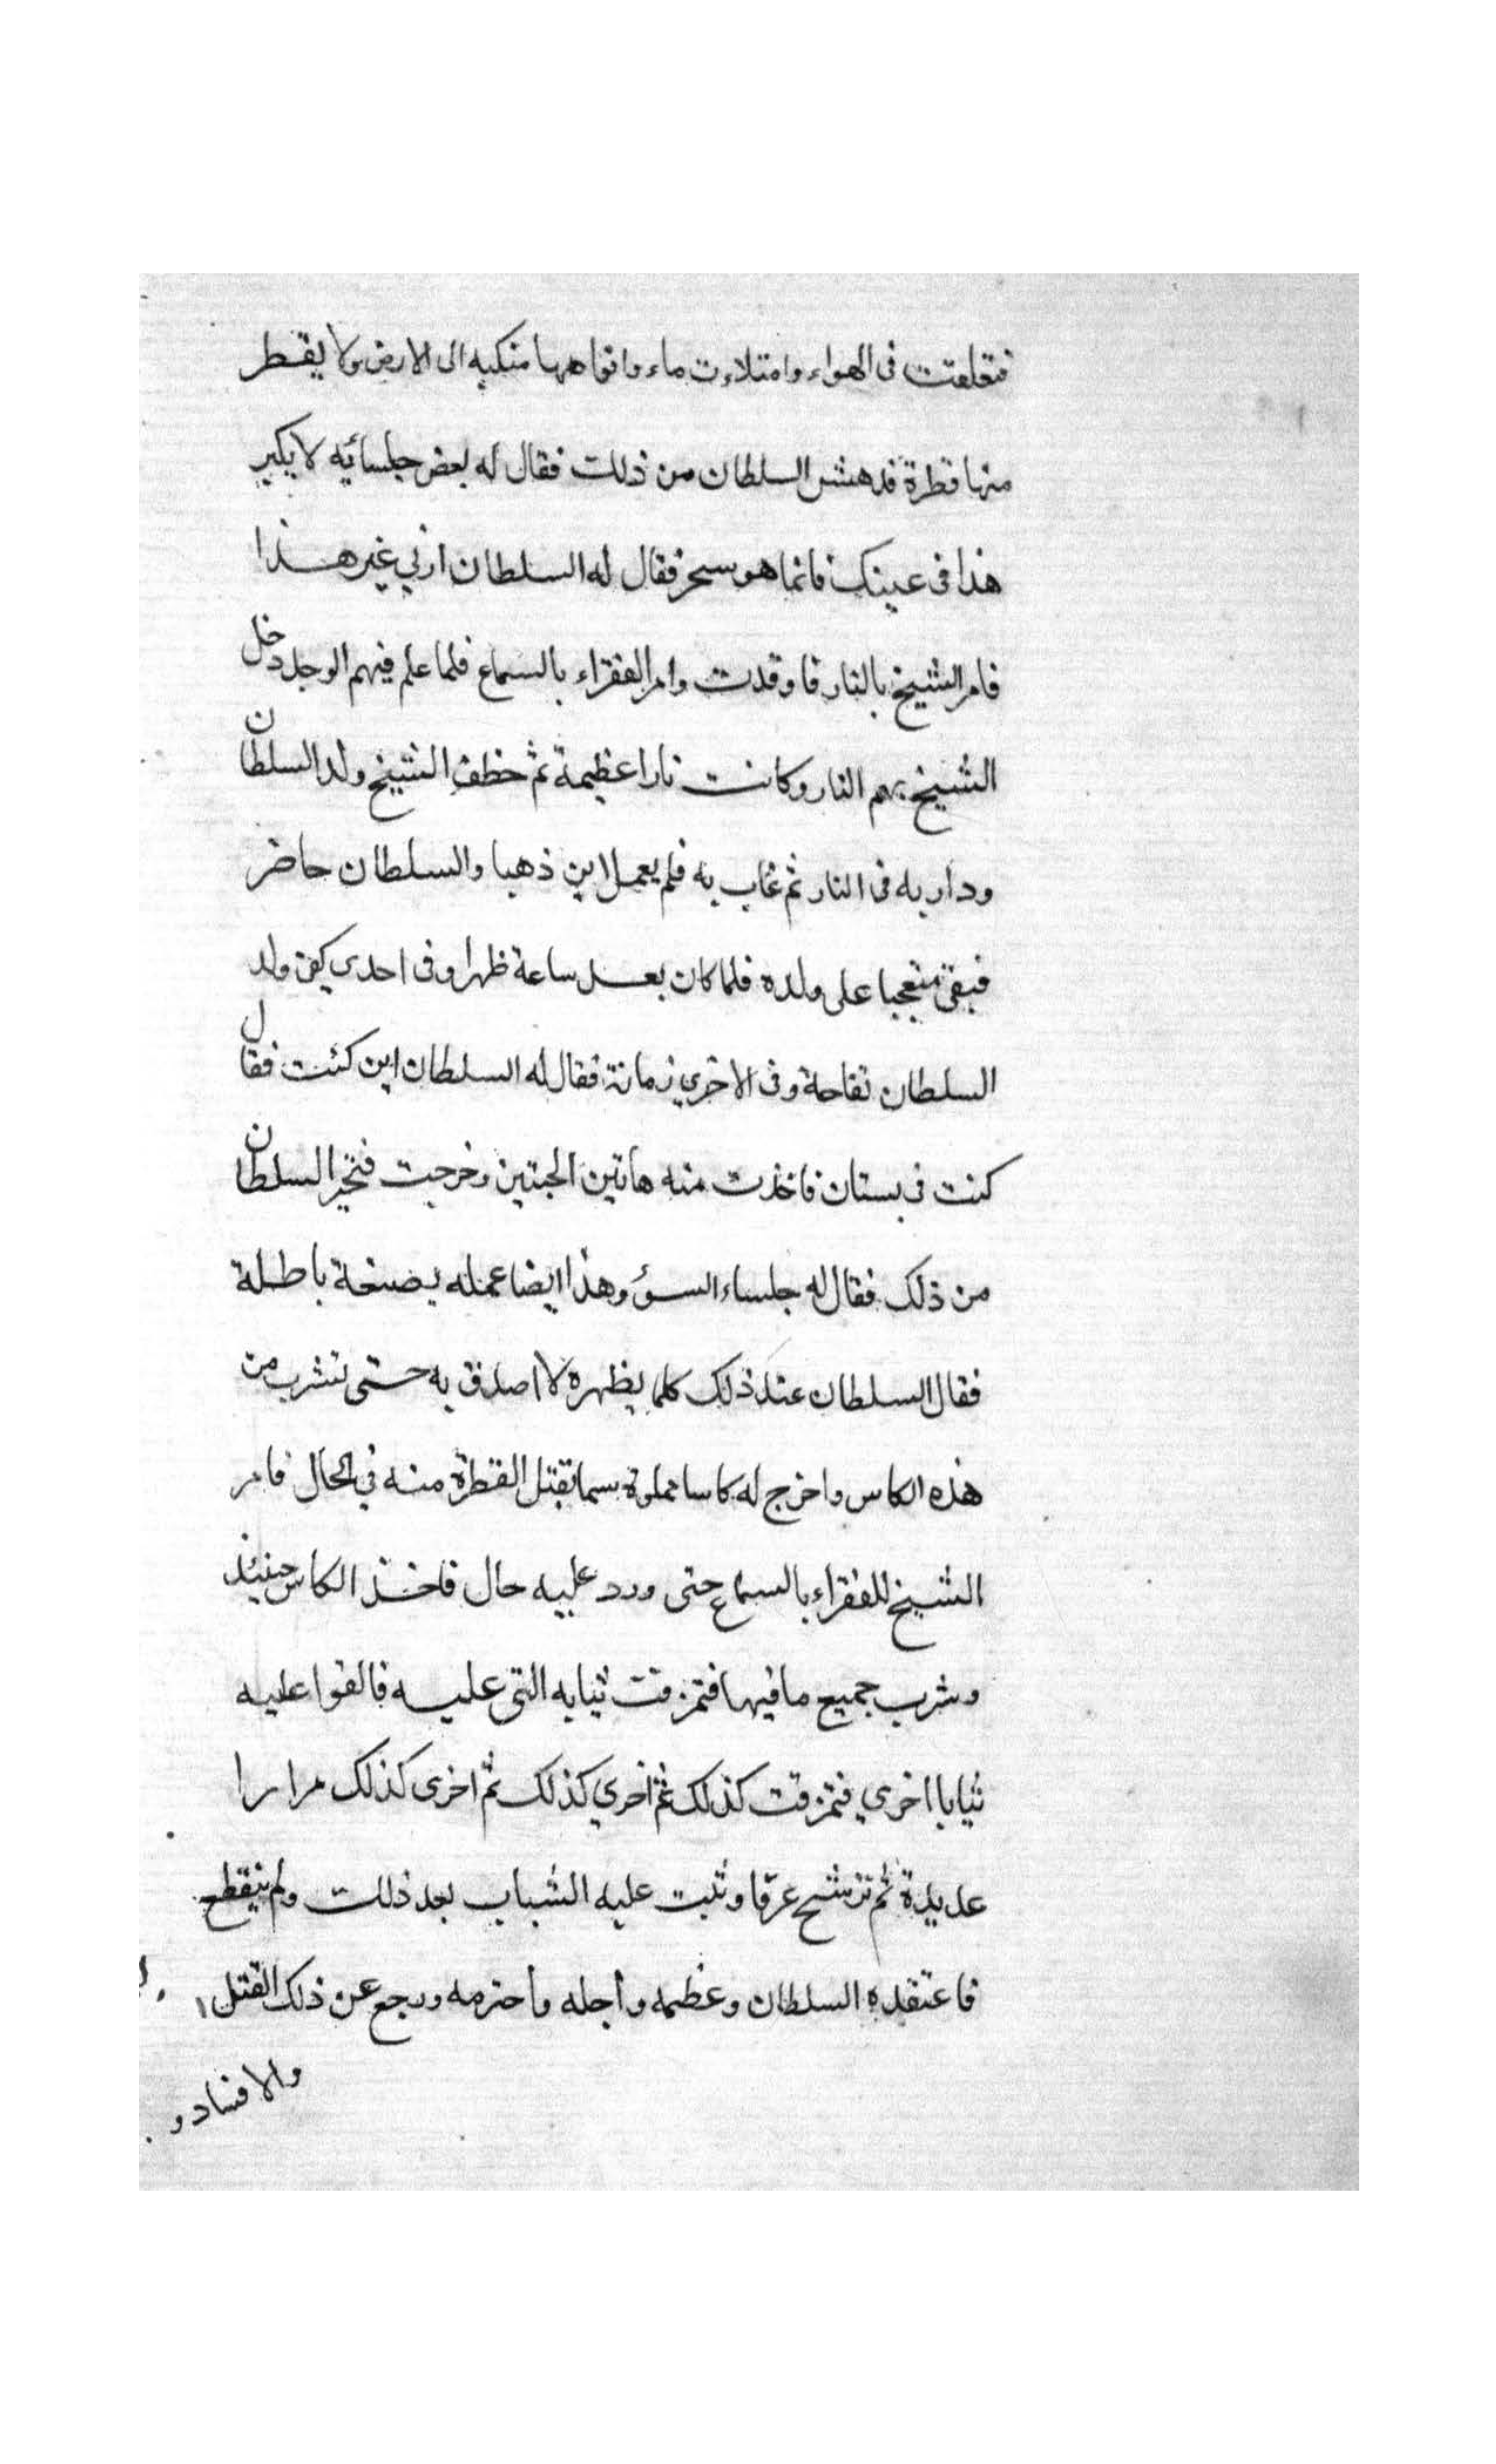 فتعلقت فى الهواء وامتلاءت ماء وافواهها منكبه الى الارض ولا يقطر
منها قطرة فدهش السلطان من ذلك فقال له بعض جلسائه لا يكبر
هذا فى عينك فانما هو سحر فقال له السلطان ارني غير هذا
فامر الشيخ بالنار فاوقدت وامر الفقراء بالسماع فلما علم فيهم الوجل دخل
الشيخ بهم النار وكانت نارا عظيمة ثم خطف الشيخ ولد السلطان
ودار به فى النار ثم غاب به فلم يعلم اين ذهبا والسلطان حاضر
فبقى متعجبا على ولده فلما كان بعد ساعة ظهرا وفى احدى كفى ولد
السلطان تفاحة وفى الاخري رمانة فقال له السلطان اين كنت فقال
كنت فى بستان فاخذت منه هاتين الحبتين وخرجت فتحير السلطان
من ذلك فقال له جلساء السوء وهذا ايضا عمله بصنعة باطلة
فقال السلطان عند ذلك كلما يظهره لا اصدق به حتى تشرب من
هذه الكاس واخرج له كاسا مملوة سما تقتل القطرة منه في الحال فامر
الشيخ للفقراء بالسماع حتى ورد عليه حال فاخذ الكاس حينئذ
وشرب جميع ما فيها فتمزقت ثيابه التى عليه فالقوا عليه
ثيابا اخري فتمزقت كذلك ثم اخري كذلك ثم اخرى كذلك مرارا
عديدة ثم ترشح عرقا وثبت عليه الثياب بعد ذلك ولم يتقطع
فاعتقده السلطان وعظمه وأجله وأحترمه ورجع عن ذلك القتل
والافساد و